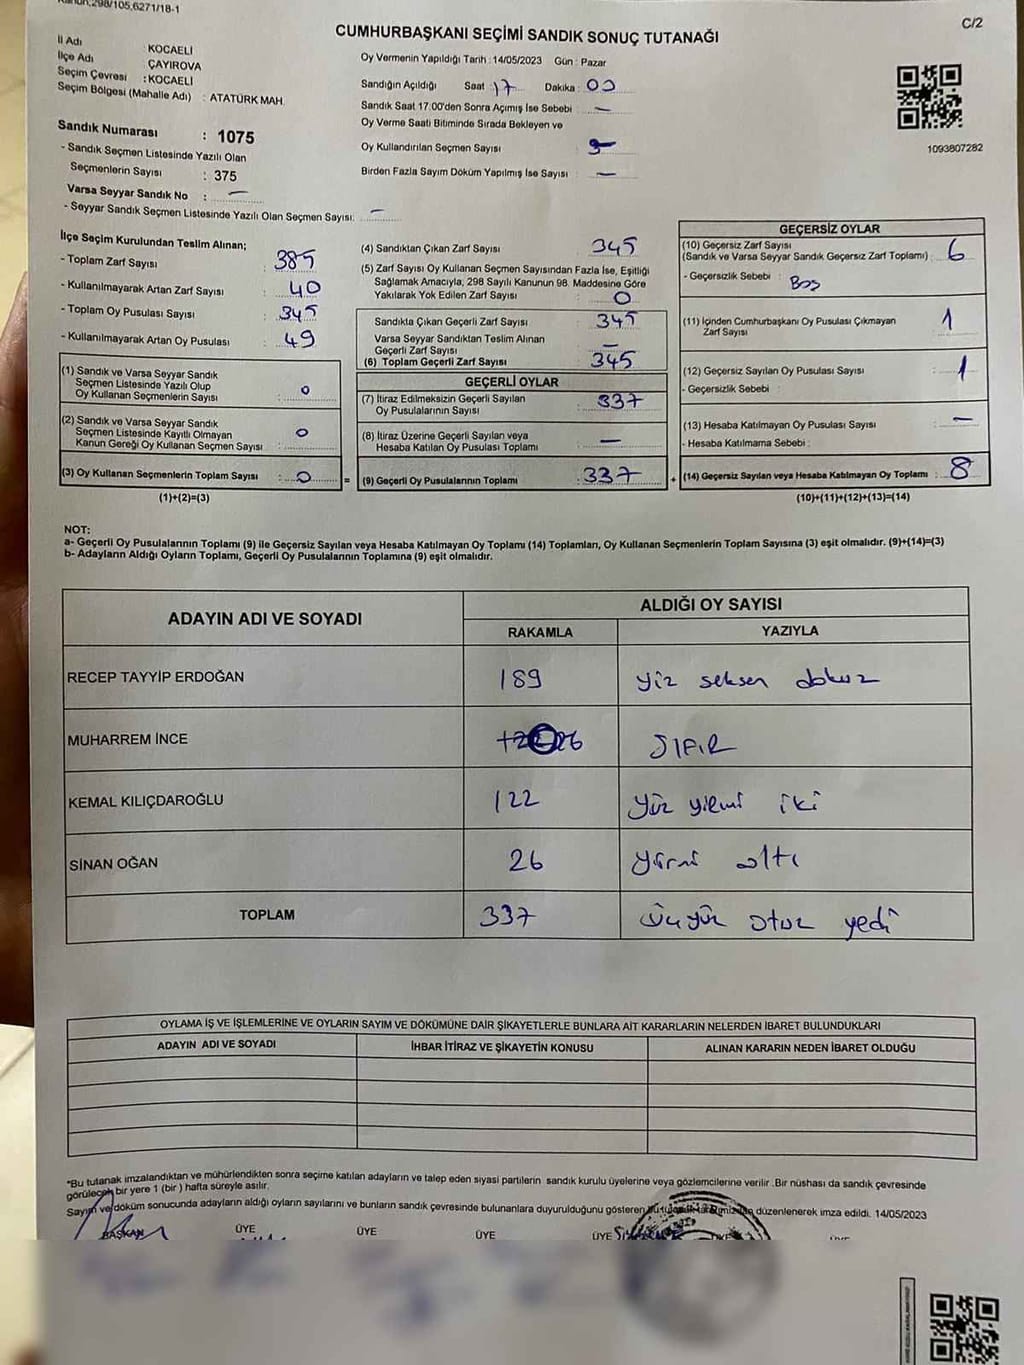 Kanun,298/105,6271/18-1
C/2
CUMHURBAŞKANI SEÇİMİ SANDIK SONUÇ TUTANAĞI
İl Adı : KOCAELİ
İlçe Adı : ÇAYIROVA
Seçim Çevresi : KOCAELİ
Seçim Bölgesi (Mahalle Adı) : ATATÜRK MAH.
Sandık Numarası : 1075
- Sandık Seçmen Listesinde Yazılı Olan
Seçmenlerin Sayısı : 375
Varsa Seyyar Sandık No : —
- Seyyar Sandık Seçmen Listesinde Yazılı Olan Seçmen Sayısı: —
Oy Vermenin Yapıldığı Tarih : 14/05/2023 Gün : Pazar
Sandığın Açıldığı Saat : 17 Dakika : 00
Sandık Saat 17:00'den Sonra Açımış İse Sebebi : —
Oy Verme Saati Bitiminde Sırada Bekleyen ve
Oy Kullandırılan Seçmen Sayısı :
Birden Fazla Sayım Döküm Yapılmış İse Sayısı : —
1093807282
İlçe Seçim Kurulundan Teslim Alınan;
- Toplam Zarf Sayısı : 385
- Kullanılmayarak Artan Zarf Sayısı : 40
- Toplam Oy Pusulası Sayısı : 345
- Kullanılmayarak Artan Oy Pusulası : 49
(1) Sandık ve Varsa Seyyar Sandık
Seçmen Listesinde Yazılı Olup
Oy Kullanan Seçmenlerin Sayısı : 0
(2) Sandık ve Varsa Seyyar Sandık
Seçmen Listesinde Kayıtlı Olmayan
Kanun Gereği Oy Kullanan Seçmen Sayısı : 0
(3) Oy Kullanan Seçmenlerin Toplam Sayısı : 0 =
(1)+(2)=(3)
(4) Sandıktan Çıkan Zarf Sayısı : 345
(5) Zarf Sayısı Oy Kullanan Seçmen Sayısından Fazla İse, Eşitliği
Sağlamak Amacıyla; 298 Sayılı Kanunun 98. Maddesine Göre
Yakılarak Yok Edilen Zarf Sayısı : 0
Sandıkta Çıkan Geçerli Zarf Sayısı : 345
Varsa Seyyar Sandıktan Teslim Alınan
Geçerli Zarf Sayısı : —
(6) Toplam Geçerli Zarf Sayısı : 345
GEÇERLİ OYLAR
(7) İtiraz Edilmeksizin Geçerli Sayılan
Oy Pusulalarının Sayısı : 337
(8) İtiraz Üzerine Geçerli Sayılan veya
Hesaba Katılan Oy Pusulası Toplamı : —
(9) Geçerli Oy Pusulalarının Toplamı : 337 +
GEÇERSİZ OYLAR
(10) Geçersiz Zarf Sayısı
(Sandık ve Varsa Seyyar Sandık Geçersiz Zarf Toplamı) : 6
- Geçersizlik Sebebi : Boş
(11) İçinden Cumhurbaşkanı Oy Pusulası Çıkmayan
Zarf Sayısı : 1
(12) Geçersiz Sayılan Oy Pusulası Sayısı : 1
- Geçersizlik Sebebi :
(13) Hesaba Katılmayan Oy Pusulası Sayısı : —
- Hesaba Katılmama Sebebi :
(14) Geçersiz Sayılan veya Hesaba Katılmayan Oy Toplamı : 8
(10)+(11)+(12)+(13)=(14)
NOT:
a- Geçerli Oy Pusulalarının Toplamı (9) ile Geçersiz Sayılan veya Hesaba Katılmayan Oy Toplamı (14) Toplamları, Oy Kullanan Seçmenlerin Toplam Sayısına (3) eşit olmalıdır. (9)+(14)=(3)
b- Adayların Aldığı Oyların Toplamı, Geçerli Oy Pusulalarının Toplamına (9) eşit olmalıdır.
ADAYIN ADI VE SOYADI
ALDIĞI OY SAYISI
RAKAMLA YAZIYLA
RECEP TAYYİP ERDOĞAN 189 yüz seksen dokuz
MUHARREM İNCE 0 SIFIR
KEMAL KILIÇDAROĞLU 122 yüz yirmi iki
SİNAN OĞAN 26 yirmi altı
TOPLAM 337 üçyüz otuz yedi
OYLAMA İŞ VE İŞLEMLERİNE VE OYLARIN SAYIM VE DÖKÜMÜNE DAİR ŞİKAYETLERLE BUNLARA AİT KARARLARIN NELERDEN İBARET BULUNDUKLARI
ADAYIN ADI VE SOYADI İHBAR İTİRAZ VE ŞİKAYETİN KONUSU ALINAN KARARIN NEDEN İBARET OLDUĞU
*Bu tutanak imzalandıktan ve mühürlendikten sonra seçime katılan adayların ve talep eden siyasi partilerin sandık kurulu üyelerine veya gözlemcilerine verilir .Bir nüshası da sandık çevresinde
görülecek bir yere 1 (bir ) hafta süreyle asılır.
Sayım ve döküm sonucunda adayların aldığı oyların sayılarını ve bunların sandık çevresinde bulunanlara duyurulduğunu gösteren düzenlenerek imza edildi. 14/05/2023
BAŞKAN ÜYE ÜYE ÜYE ÜYE